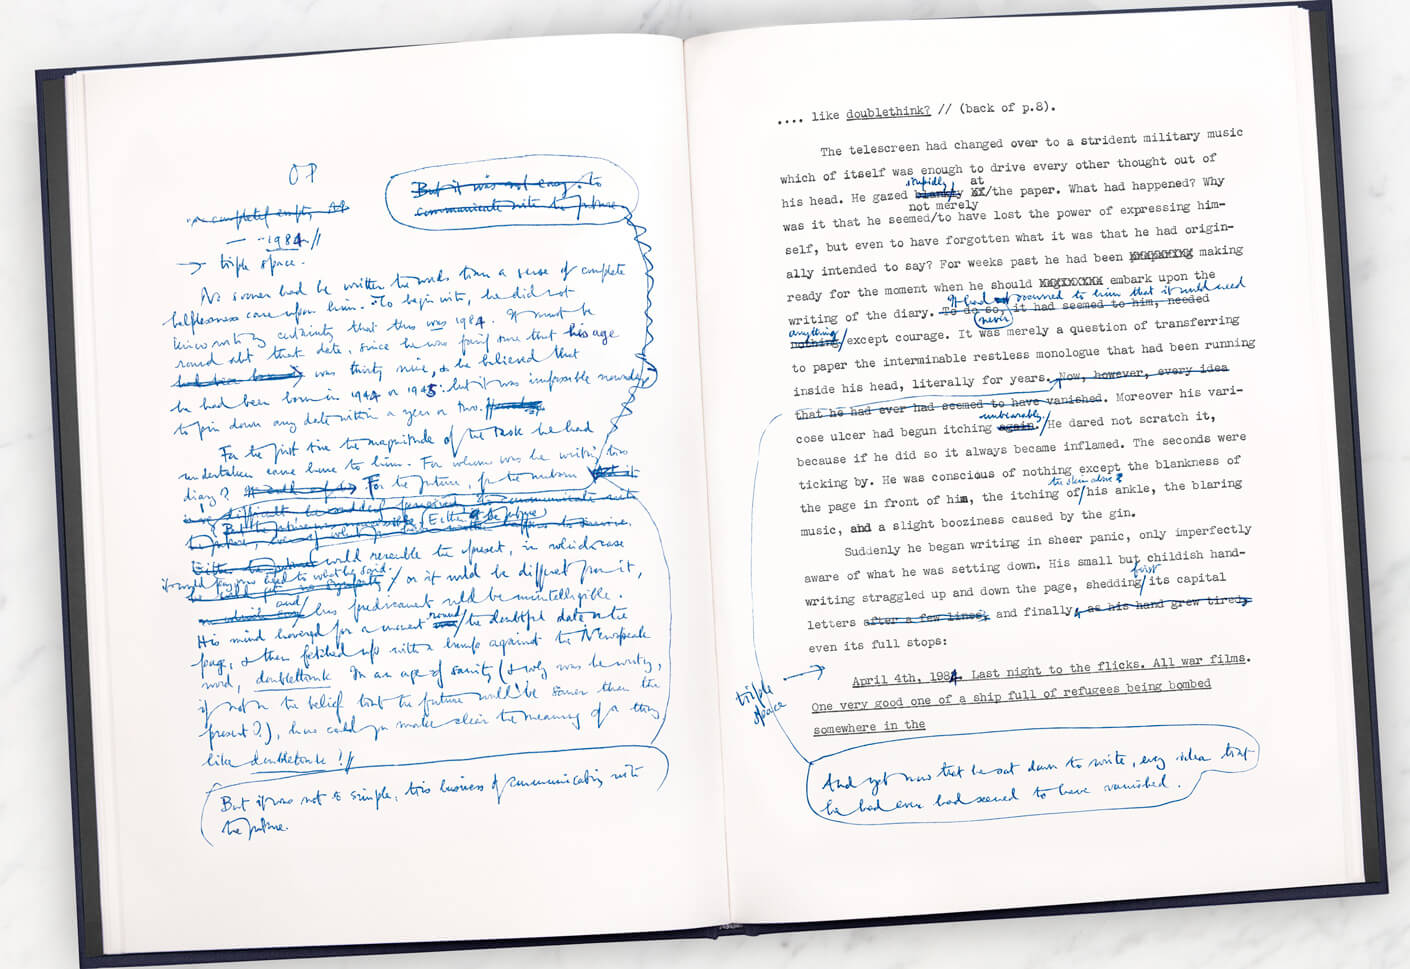 OP
But it was not easy to
communicate with the future
completely empty. At
— 1984 //
→ triple space.
No sooner had he written the words than a sense of complete
helplessness came upon him. To begin with, he did not
know with any certainty that this was 1984. It must be
round abt that date, since he was fairly sure that his age
was thirty nine, & he believed that
he had been born in 1944 or 1945: but it was impossible nowadays
to pin down any date within a year or two.
For the first time the magnitude of the task he had
undertaken came home to him. For whom was he writing this
diary? For the future, for the unborn.
Either the future
would resemble the present, in which case
it would pay no heed to what he said:
/ or it would be different from it,
and / his predicament would be unintelligible.
His mind hovered for a moment round / the doubtful date on the
page, & then fetched up with a bump against the Newspeak
word, doublethink. In an age of sanity (& why was he writing,
if not in the belief that the future would be saner than the
present?), how could you make clear the meaning of a thing
like doublethink?//
But it was not so simple, this business of communicating with
the future.
.... like doublethink? // (back of p.8).
The telescreen had changed over to a strident military music
which of itself was enough to drive every other thought out of
stupidly at
his head. He gazed blankly / of/the paper. What had happened? Why
not merely
was it that he seemed/to have lost the power of expressing him-
self, but even to have forgotten what it was that he had origin-
ally intended to say? For weeks past he had been making
ready for the moment when he should embark upon the
It had occurred to him that it would need
writing of the diary. To do so, it had seemed to him, needed
anything never
nothing/except courage. It was merely a question of transferring
to paper the interminable restless monologue that had been running
inside his head, literally for years. Now, however, every idea
that he had ever had seemed to have vanished. Moreover his vari-
unbearably.
cose ulcer had begun itching again./He dared not scratch it,
because if he did so it always became inflamed. The seconds were
ticking by. He was conscious of nothing except the blankness of
the skin above
the page in front of him, the itching of/his ankle, the blaring
music, and a slight booziness caused by the gin.
Suddenly he began writing in sheer panic, only imperfectly
aware of what he was setting down. His small but childish hand-
first
writing straggled up and down the page, shedding/its capital
letters after a few lines, and finally, as his hand grew tired,
even its full stops:
triple
space
→
April 4th, 1984. Last night to the flicks. All war films.
One very good one of a ship full of refugees being bombed
somewhere in the
And yet now that he sat down to write, every idea that
he had ever had seemed to have vanished.